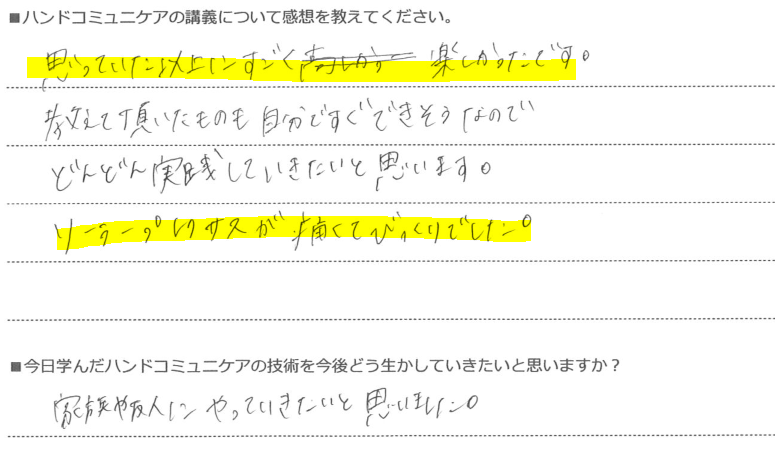 ■ハンドコミュニケアの講義について感想を教えてください。
思っていた以上にすごく 楽しかったです。
教えて頂いたものも自分ですぐできそうなので
どんどん実践していきたいと思います。
ソーラープレクサスが痛くてびっくりでした。
■今日学んだハンドコミュニケアの技術を今後どう生かしていきたいと思いますか？
家族や友人にやっていきたいと思いました。